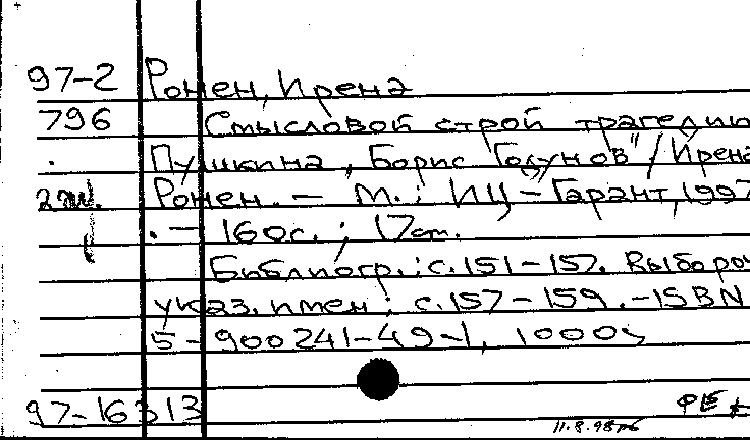 97-2 Ронен, Ирена
796 Смысловой строй трагедию
Пушкина „Борис Годунов“ / Ирена
2 эк. Ронен. – М.: ИЦ – Гарант, 1997
. – 160с. ; 17 см.
Библиогр.: с.151-157. Выбороч
указ. имен: с.157-159. – ISBN
5-900241-49-1, 1000э
97-16313 ФЕ
11.8.98